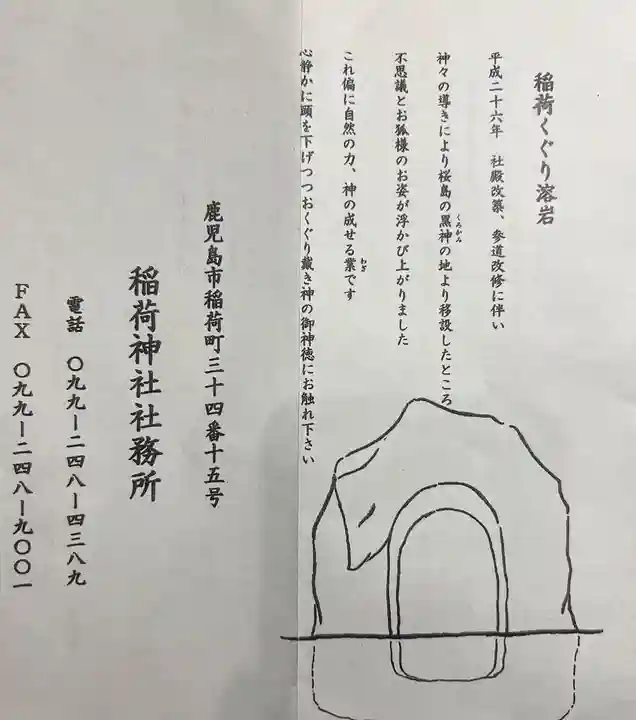 稲荷くぐり溶岩
平成二十六年　社殿改築、参道改修に伴い
神々の導きにより桜島の黒神の地より移設したところ
くろかみ
不思議とお狐様のお姿が浮かび上がりました
これ偏に自然の力、神の成せる業です
わざ
心静かに頭を下げつつおくぐり戴き神の御神徳にお触れ下さい
鹿児島市稲荷町三十四番十五号
稲荷神社社務所
電話　〇九九ー二四八ー四三八九
ＦＡＸ　〇九九ー二四八ー九〇〇一